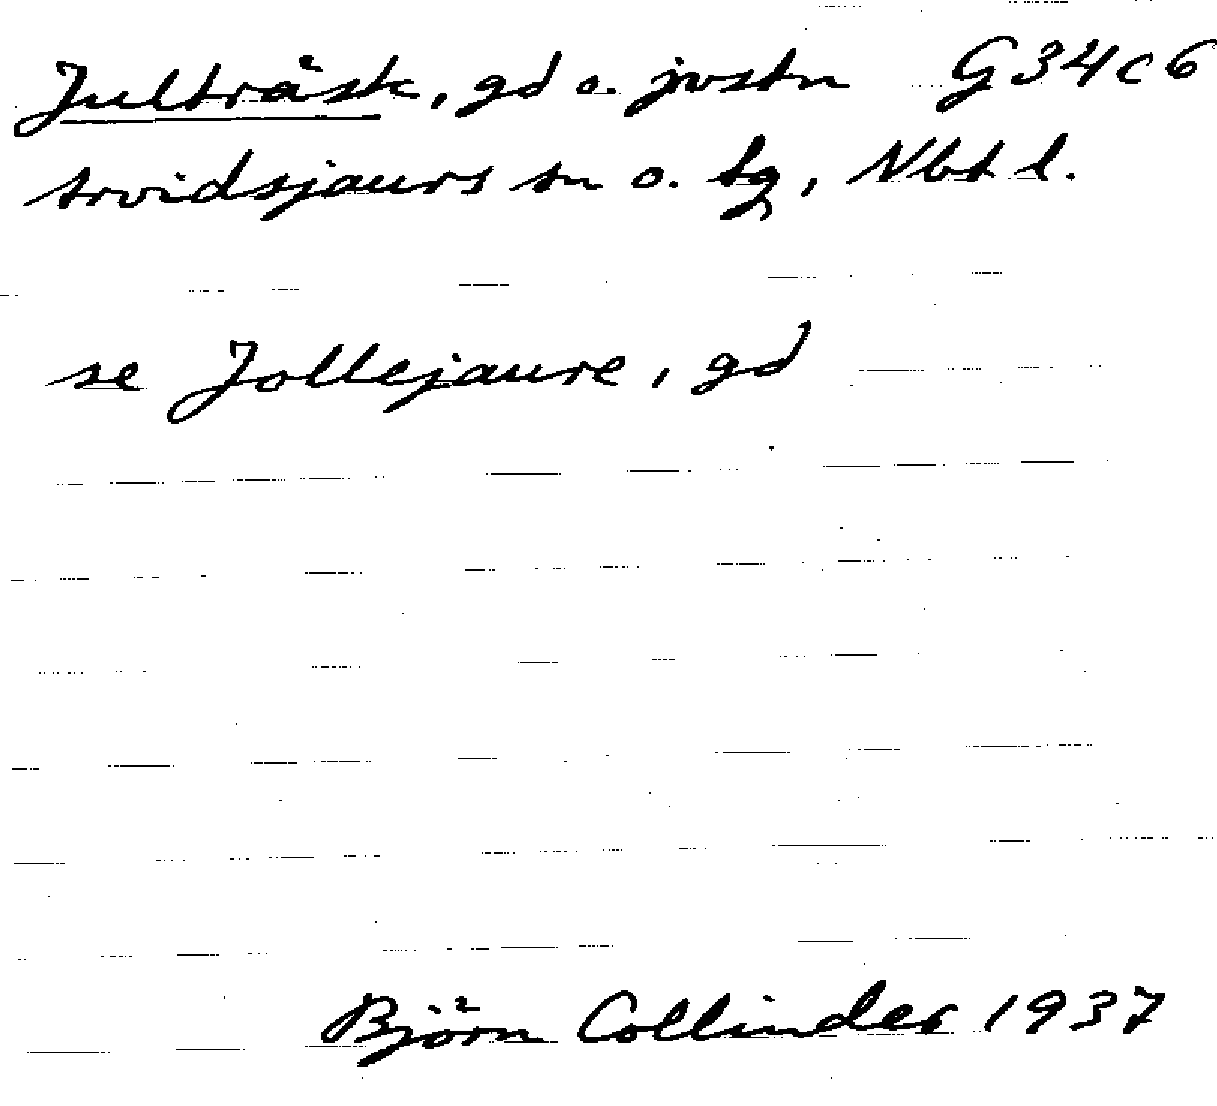 Julträsk, gd o. jvstn G34c6
Arvidsjaurs sn o. tg, Nbt l.
se Jollejaure, gd
Björn Collinder 1937